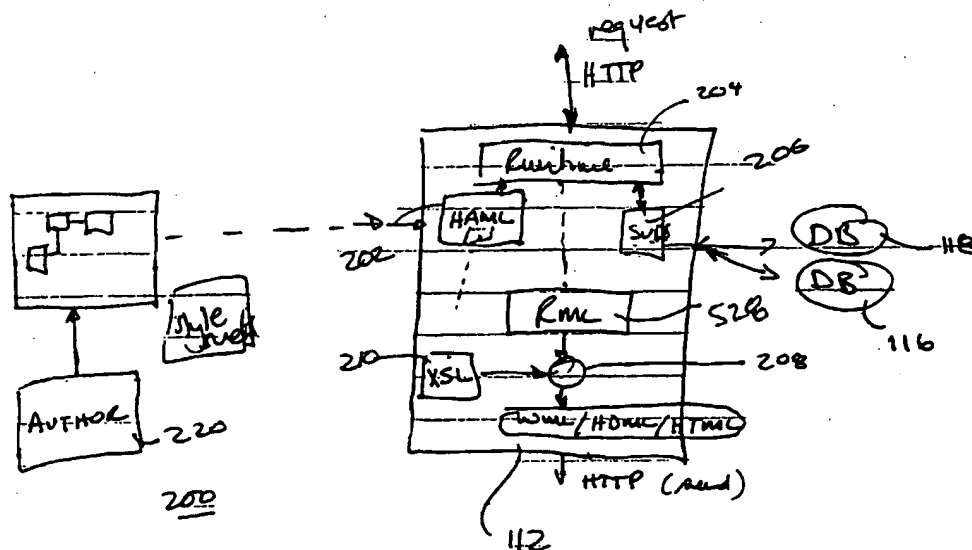 request
HTTP
204
Runtime
206
HAML
202
DB
118
DB
116
RML
528
Style
210
XSL
208
AUTHOR
220
WML/HDML/HTML
HTTP (send)
200
112